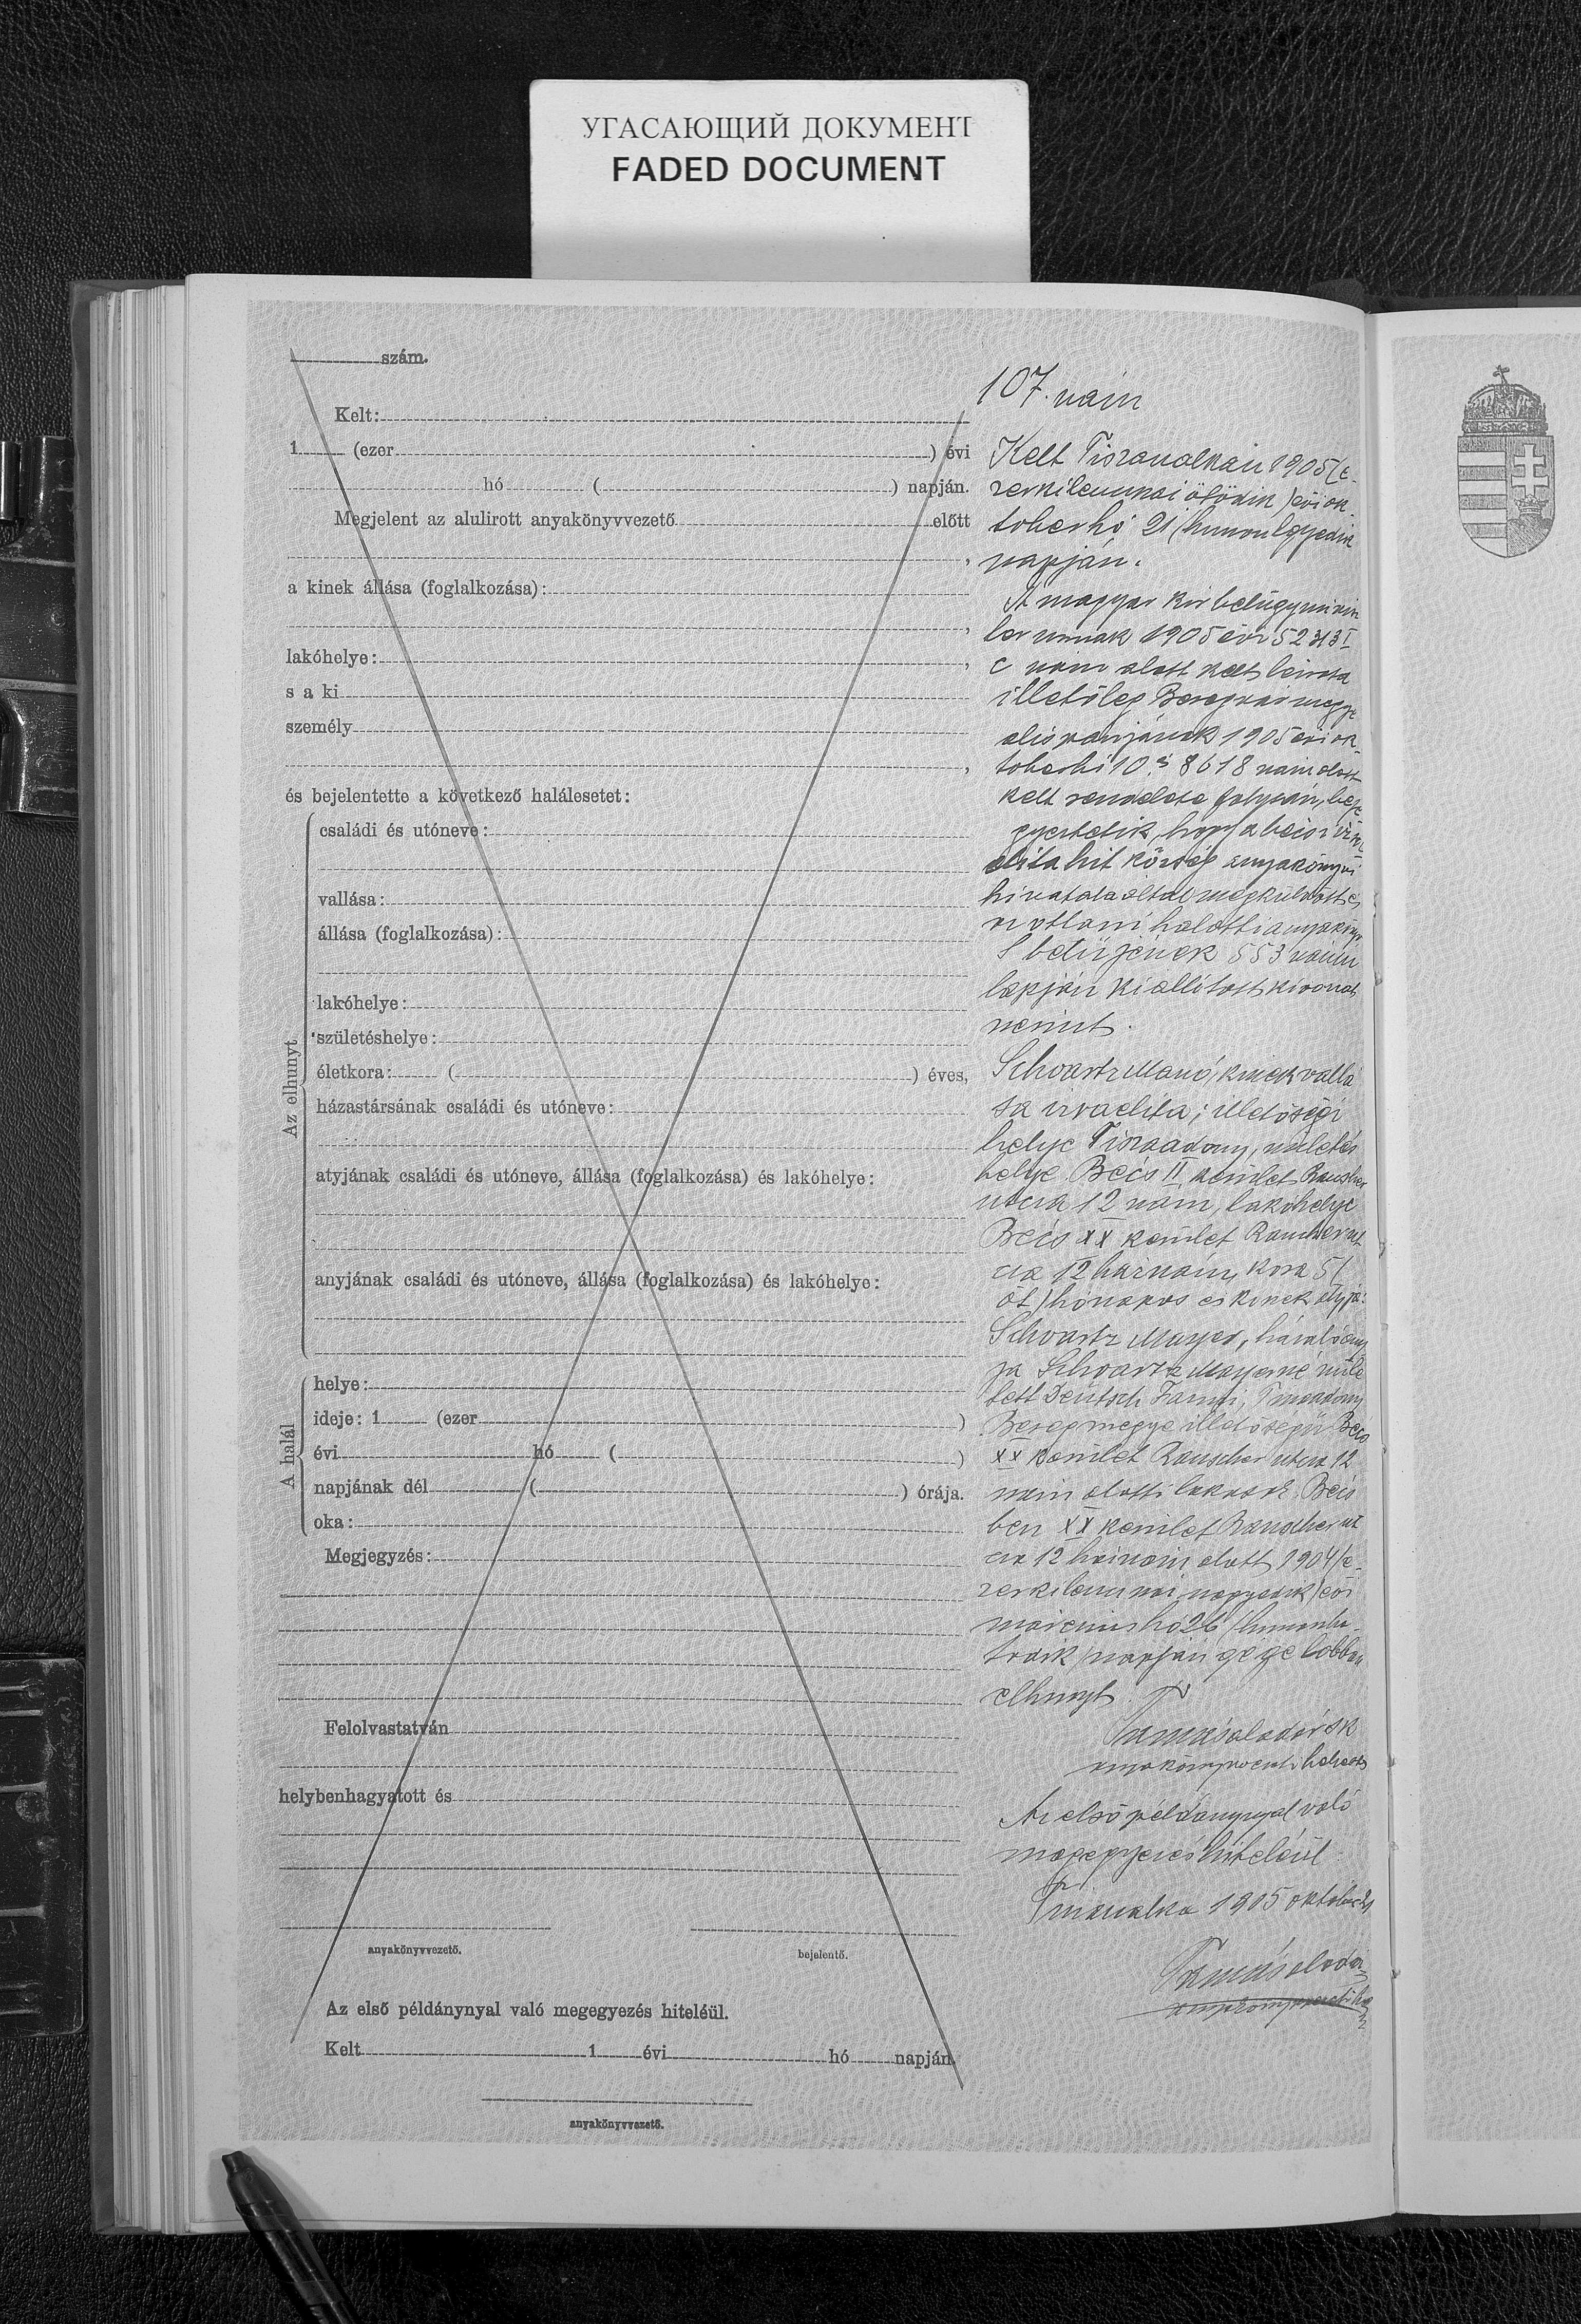 УГАСАЮЩИЙ ДОКУМЕНТ
FADED DOCUMENT
szám.
Kelt:
1 (ezer ) évi
hó ( ) napján.
Megjelent az alulirott anyakönyvvezető előtt
,
a kinek állása (foglalkozása):
,
lakóhelye: ,
s a ki
személy
,
és bejelentette a következő halálesetet:
Az elhunyt
családi és utóneve:
vallása:
állása (foglalkozása):
lakóhelye:
születéshelye:
életkora: ( ) éves,
házastársának családi és utóneve:
atyjának családi és utóneve, állása (foglalkozása) és lakóhelye:
anyjának családi és utóneve, állása (foglalkozása) és lakóhelye:
A halál
helye:
ideje: 1 (ezer )
évi hó ( )
napjának dél ( ) órája.
oka:
Megjegyzés:
Felolvastatván
helybenhagyatott és
anyakönyvvezető. bejelentő.
Az első példánynyal való megegyezés hiteléül.
Kelt 1 évi hó napján.
anyakönyvvezető.
107. szám
Kelt 1905 (e-
zerkilenczszáz ötödik) évi ok-
toberhó 21 (huszonegyedik
napján.
A magyar kir belügyminisz
1905 évi
C szám alatt kelt leirata
illetőleg Beregvármegye
alispánjának 1905 évi ok-
toberhó 10 8618 szám alatt
kelt rendelete folytán, beje
gyeztetik, hogy a bécsi izr
elita hit község anyakönyvi
hivatala által megküldött és
az ottani halotti anyakönyv
S betűjének 553 szám
lapján kiállított kivonat
szerint.
Schvartz Manó, kinek vallá
sa izraelita; illetőségi
helye Tiszaadony, születés
helye Bécs II kerület Rauscher
utcza 12 szám, lakóhelye
Bécs XX kerület Rauscher ut
cza 12 házszám, kora 5 (
öt) hónapos és kinek atyja:
Schvartz Mayer, házaló any
ja Schvartz Mayerné szüle
tett Deutsch Fanni, Tiszaadony
Beregmegye illetőségű Bécs
XX kerület Rauscher utcza 12
szám alatti lakosok. Bécs
ben XX kerület Rauscher ut
cza 12 házszám alatt 1904 (e-
zerkilenczszáz negyedik) évi
márczius hó 26 (huszonha-
todik) napján gégelobban
elhunyt.
anyakönyvvezető helyettes
Az első példánynyal való
megegyezés hiteléül
1905 október 21